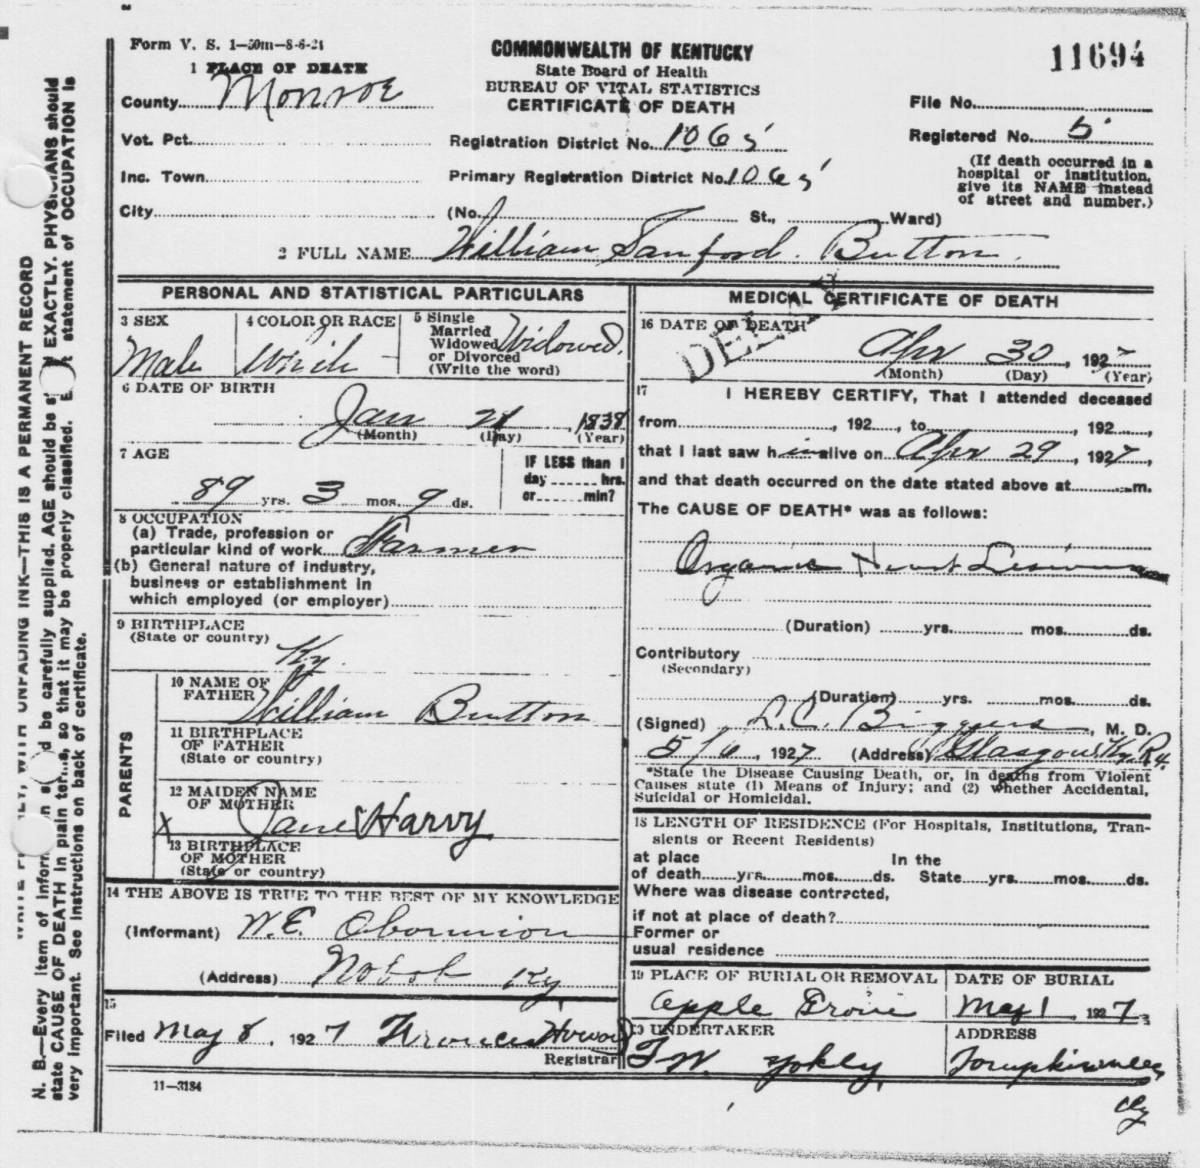 Form V. S. 1—50m—8-6-21
COMMONWEALTH OF KENTUCKY
State Board of Health
BUREAU OF VITAL STATISTICS
CERTIFICATE OF DEATH
11694
1 PLACE OF DEATH
County Monroe
File No.
Vot. Pct.
Registration District No. 1065
Registered No. 5
Inc. Town
Primary Registration District No. 1065
(If death occurred in a
hospital or institution,
give its NAME instead
of street and number.)
City
(No. St., Ward)
2 FULL NAME William Sanford Button
PERSONAL AND STATISTICAL PARTICULARS
3 SEX
Male
4 COLOR OR RACE
White
5 Single
Married
Widowed
or Divorced
(Write the word)
Widowed.
6 DATE OF BIRTH
Jan 21, 1838
(Month) (Day) (Year)
7 AGE
89 yrs. 3 mos. 9 ds.
IF LESS than 1
day hrs.
or min?
8 OCCUPATION
(a) Trade, profession or
particular kind of work Farmer
(b) General nature of industry,
business or establishment in
which employed (or employer)
9 BIRTHPLACE
(State or country)
Ky.
PARENTS
10 NAME OF
FATHER
William Button
11 BIRTHPLACE
OF FATHER
(State or country)
12 MAIDEN NAME
OF MOTHER
X Jane Harvy
13 BIRTHPLACE
OF MOTHER
(State or country)
14 THE ABOVE IS TRUE TO THE BEST OF MY KNOWLEDGE
(Informant) W.E.
(Address) Nobob Ky
15
Filed May 8, 1927
Registrar
11—3184
MEDICAL CERTIFICATE OF DEATH
16 DATE OF DEATH
Apr 30, 1927
(Month) (Day) (Year)
17
I HEREBY CERTIFY, That I attended deceased
from , 192 , to , 192 ,
that I last saw him alive on Apr 29, 1927,
and that death occurred on the date stated above at m.
The CAUSE OF DEATH* was as follows:
Organic Heart Lesions
(Duration) yrs. mos. ds.
Contributory
(Secondary)
(Duration) yrs. mos. ds.
(Signed) L.C. Biggers, M. D.
5/6, 1927 (Address) Glasgow Ky R4.
*State the Disease Causing Death, or, in deaths from Violent
Causes state (1) Means of Injury; and (2) whether Accidental,
Suicidal or Homicidal.
18 LENGTH OF RESIDENCE (For Hospitals, Institutions, Tran-
sients or Recent Residents)
at place In the
of death yrs. mos. ds. State yrs. mos. ds.
Where was disease contracted,
if not at place of death?
Former or
usual residence
19 PLACE OF BURIAL OR REMOVAL
Apple Grove
DATE OF BURIAL
May 1, 1927.
UNDERTAKER
F W. Yokley,
ADDRESS
Tompkinsville
Ky
N. B.—Every item of information should be carefully supplied. AGE should be EXACTLY. PHYSICIANS should
state CAUSE OF DEATH in plain terms, so that it may be properly classified. statement of OCCUPATION is
very important. See instructions on back of certificate.
WITH UNFADING INK—THIS IS A PERMANENT RECORD